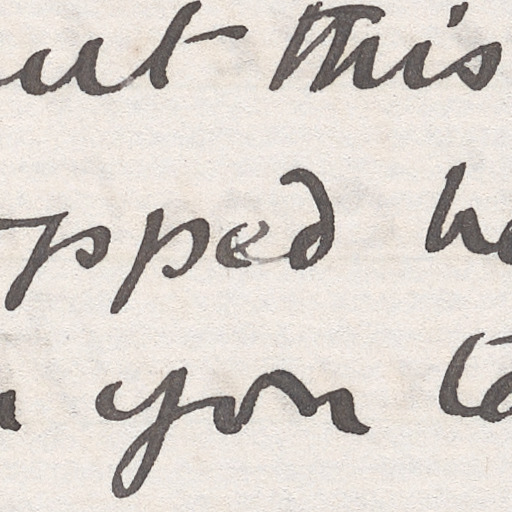 ut this
pped he
you to